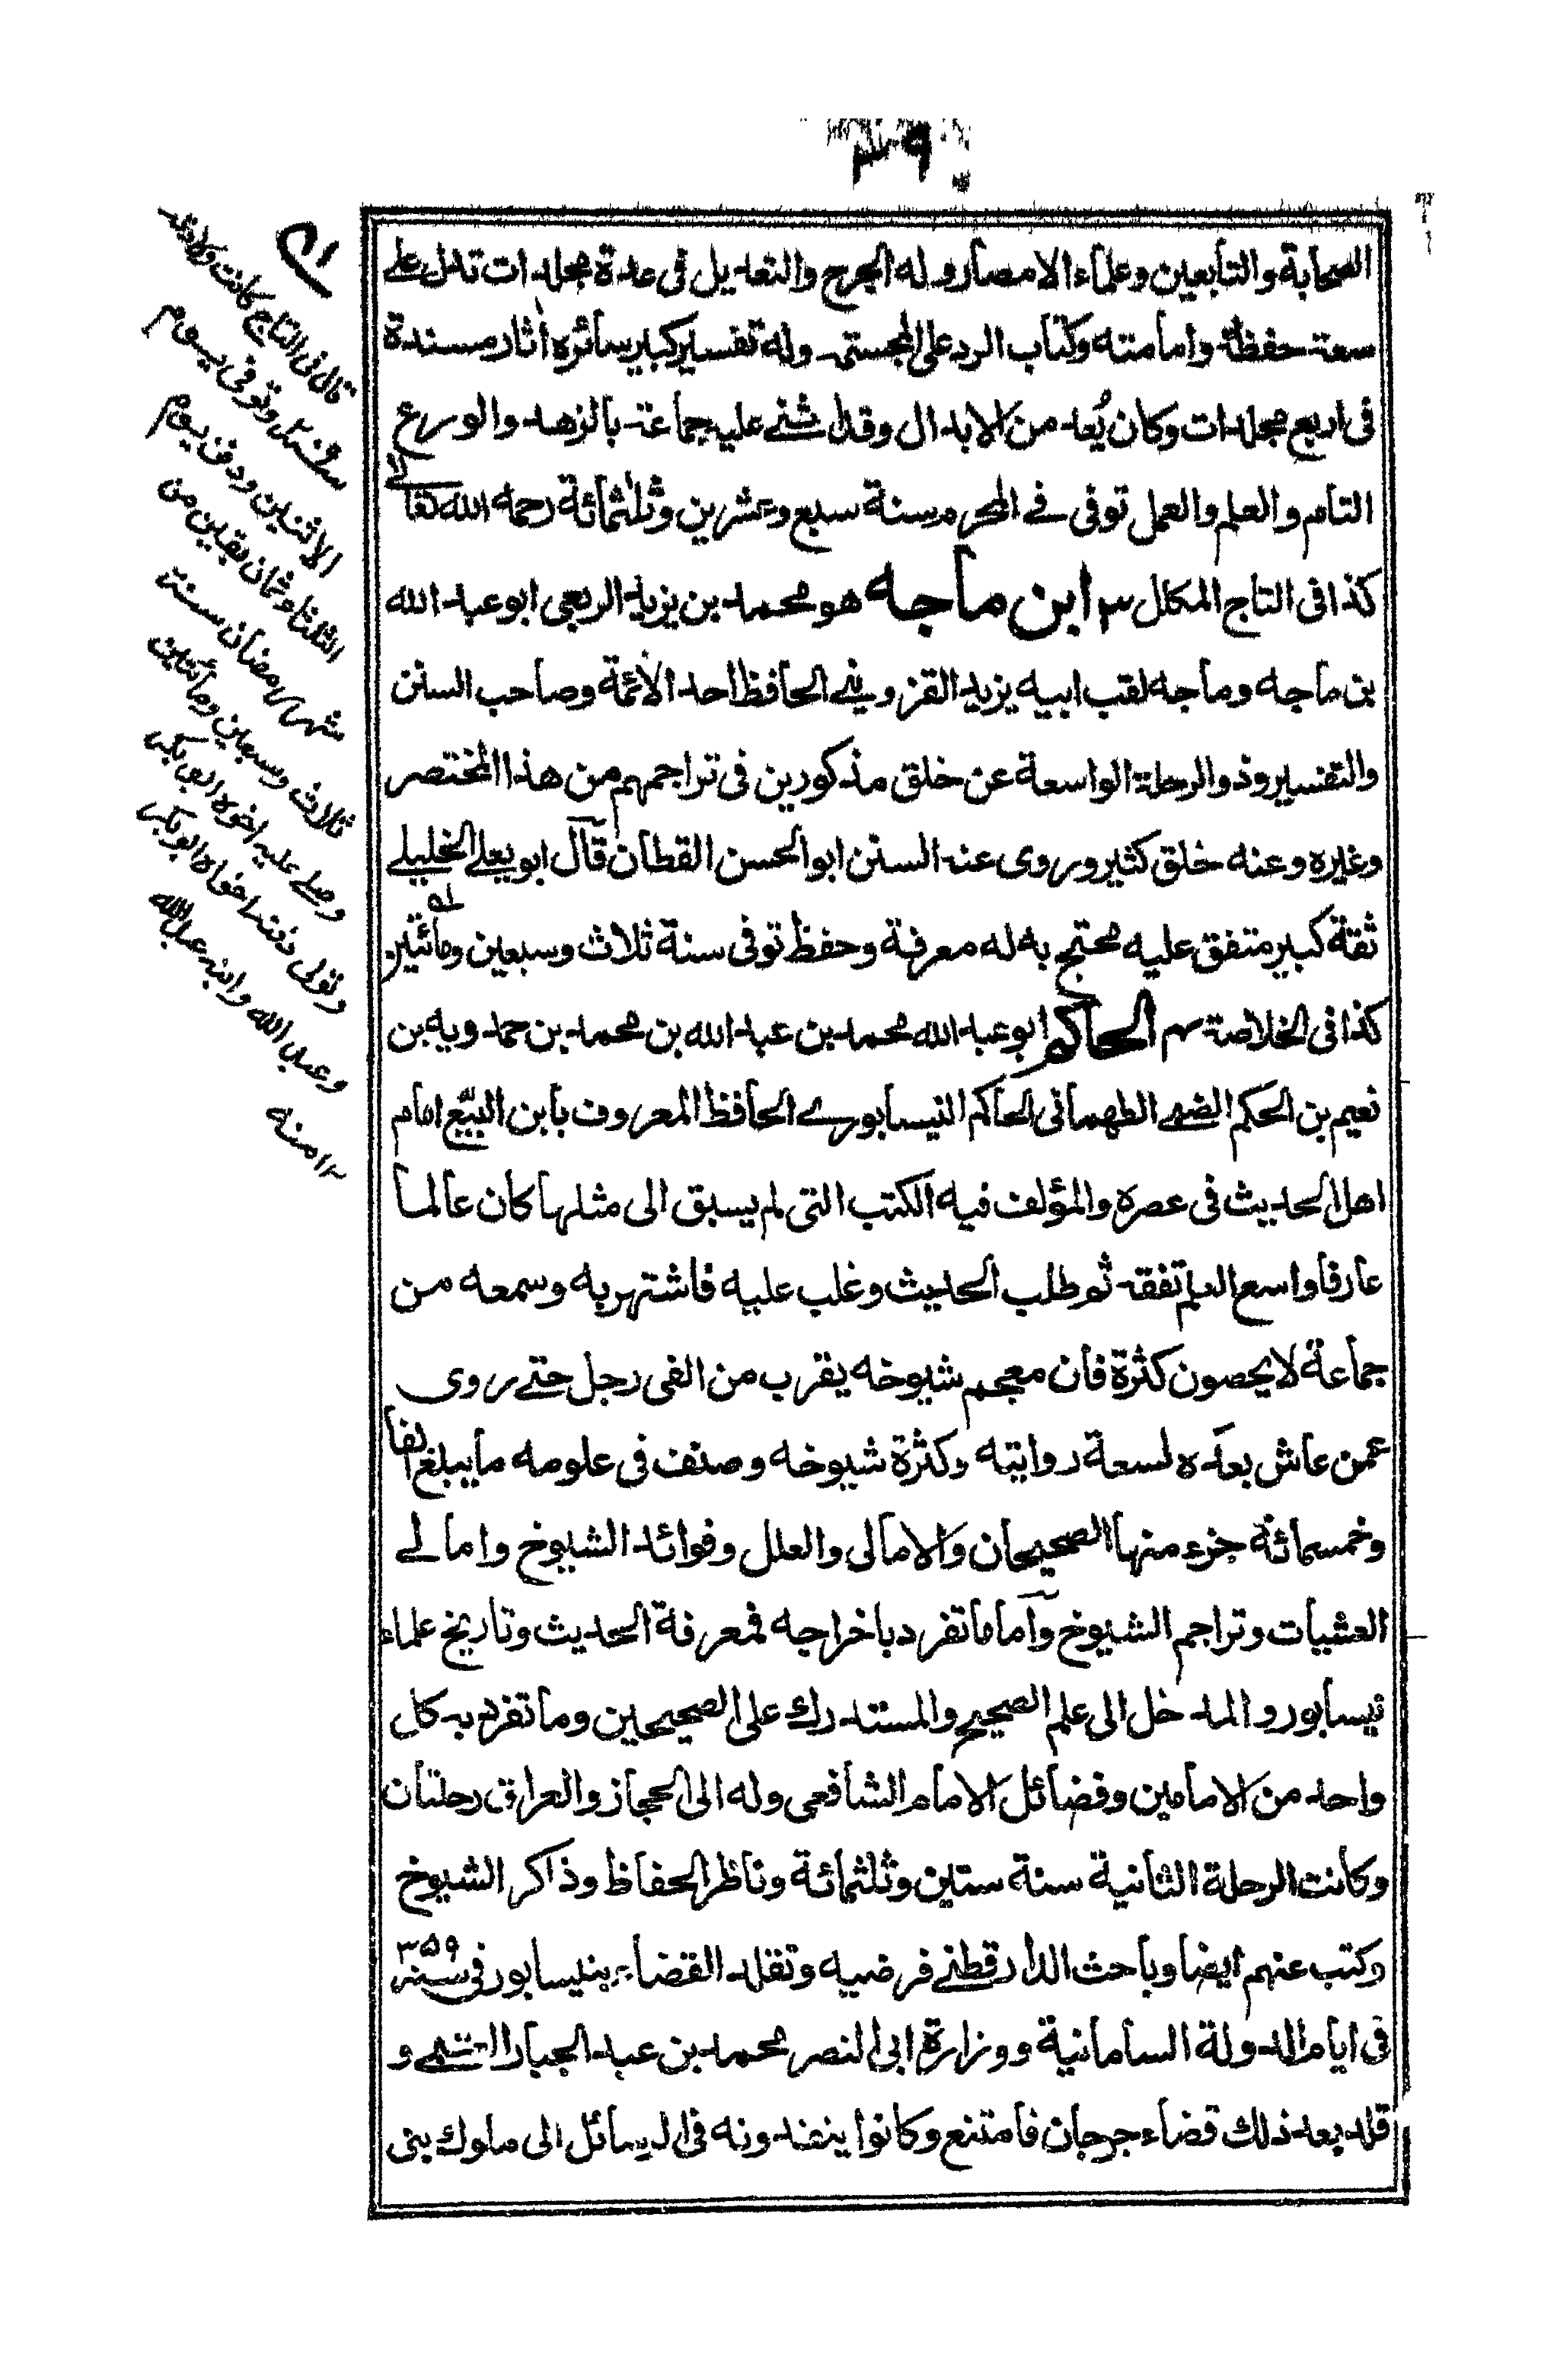 ٣٩
الصحابة والتابعين وعلماء الامصار وله الجرح والتعديل فى عدة مجلدات تدل على
سعة حفظه وامامته وكتاب الرد على المجسمة وله تفسير كبير سائره اثار مسندة
فى اربع مجلدات وكان يُعد من الابدال وقد اثنے عليه جماعة بالزهد والورع
التام والعلم والعمل توفى فے المحرم سنة سبع وعشرين وثلثمائة رحمه الله تعالے
كذا فى التاج المكلل ٣ ابن ماجه هو محمد بن يزيد الربعى ابو عبد الله
بن ماجه وماجه لقب ابيه يزيد القزوينے الحافظ احد الأئمة وصاحب السنن
والتفسير وذو الرحلة الواسعة عن خلق مذكورين فى تراجمهم من هذا المختصر
وغيره وعنه خلق كثير وروى عنه السنن ابو الحسن القطان قال ابو يعلے الخليلے
ثقة كبير متفق عليه محتج به له معرفة وحفظ توفى سنة ثلاث وسبعين ومائتين
كذا فى الخلاصة ٤ الحاكم ابو عبد الله محمد بن عبد الله بن محمد بن حمدويه بن
نعيم بن الحكم الضبے الطهمانى الحاكم النيسابورے الحافظ المعروف بابن البيّع امام
اهل الحديث فى عصره والمؤلف فيه الكتب التى لم يسبق الى مثلها كان عالما
عارفا واسع العلم تفقه ثم طلب الحديث وغلب عليه فاشتهر به وسمعه من
جماعة لا يحصون كثرة فان معجم شيوخه يقرب من الفى رجل حتے روى
عمن عاش بعده لسعة روايته وكثرة شيوخه وصنف فى علومه ما يبلغ الفا
وخمسمائة جزء منها الصحيحان والامالى والعلل وفوائد الشيوخ وامالے
العشيات وتراجم الشيوخ وآما ما تفرد باخراجه فمعرفة الحديث وتاريخ علماء
نيسابور والمدخل الى علم الصحيح والمستدرك على الصحيحين وما تفرد به كل
واحد من الامامين وفضائل الامام الشافعى وله الى الحجاز والعراق رحلتان
وكانت الرحلة الثانية سنة ستين وثلثمائة وناظر الحفاظ وذاكر الشيوخ
وكتب عنهم ايضا وباحث الدارقطنے فرضيه وتقلد القضاء بنيسابور فى سنة ٣٥٩
فى ايام الدولة السامانية ووزارة ابى النصر محمد بن عبد الجبار العتبے و
قلد بعد ذلك قضاء جرجان فامتنع وكانوا ينفدونه فى الرسائل الى ملوك بنى
قال فى التاج كانت ولادته
وتوفى يوم
الاثنين ودفن يوم
الثلثا وثمان بقين من
شهر رمضان سنة
ثلاث وسبعين ومائتين
وصلے عليه اخوه ابو بكر
وتولى دفنه اخواه ابو بكر
وعبد الله وابنه عبد الله
١٢ منه